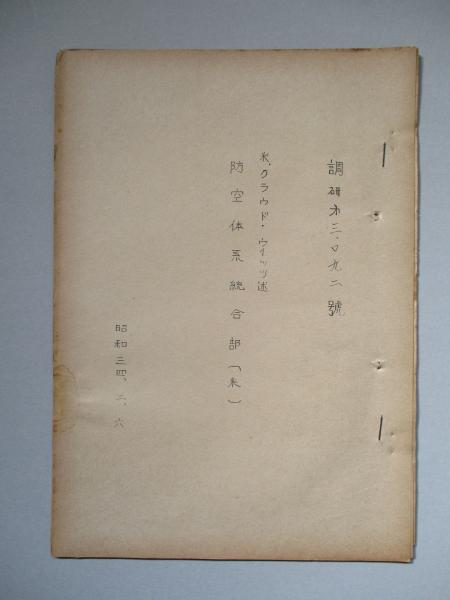 調研才三、〇九二號
米、クラウド・ウイッツ述
防空体系統合部（米）
昭和三四、二、六